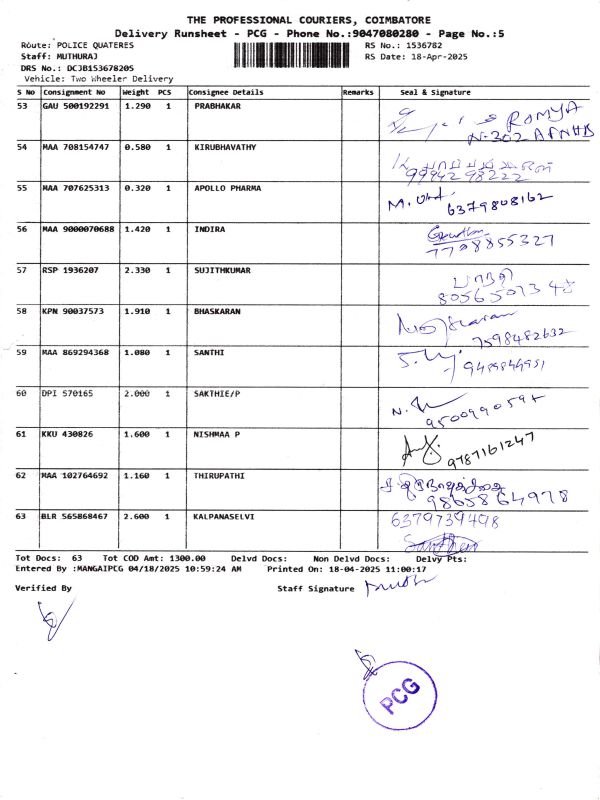 THE PROFESSIONAL COURIERS, COIMBATORE
Delivery Runsheet - PCG - Phone No.:9047080280 - Page No.:5
Route: POLICE QUATERES
RS No.: 1536782
Staff: MUTHURAJ
RS Date: 18-Apr-2025
DRS No.: DCJB1536782O5
Vehicle: Two Wheeler Delivery
S No Consignment No Weight PCS Consignee Details Remarks Seal & Signature
53 GAU 500192291 1.290 1 PRABHAKAR ROMYA
N-302 APNHB
54 MAA 708154747 0.580 1 KIRUBHAVATHY
99942 98222
55 MAA 707625313 0.320 1 APOLLO PHARMA
6379808162
56 MAA 9000070688 1.420 1 INDIRA
7798855327
57 RSP 1936207 2.330 1 SUJITHKUMAR
58 KPN 90037573 1.910 1 BHASKARAN
7598482632
59 MAA 869294368 1.080 1 SANTHI
60 DPI 570165 2.000 1 SAKTHIE/P
61 KKU 430826 1.600 1 NISHMAA P
9787161247
62 MAA 102764692 1.160 1 THIRUPATHI
98658 64978
63 BLR 565868467 2.600 1 KALPANASELVI 6379739498
Tot Docs: 63 Tot COD Amt: 1300.00 Delvd Docs: Non Delvd Docs: Delvy Pts:
Entered By :MANGAIPCG 04/18/2025 10:59:24 AM Printed On: 18-04-2025 11:00:17
Verified By Staff Signature
PCG